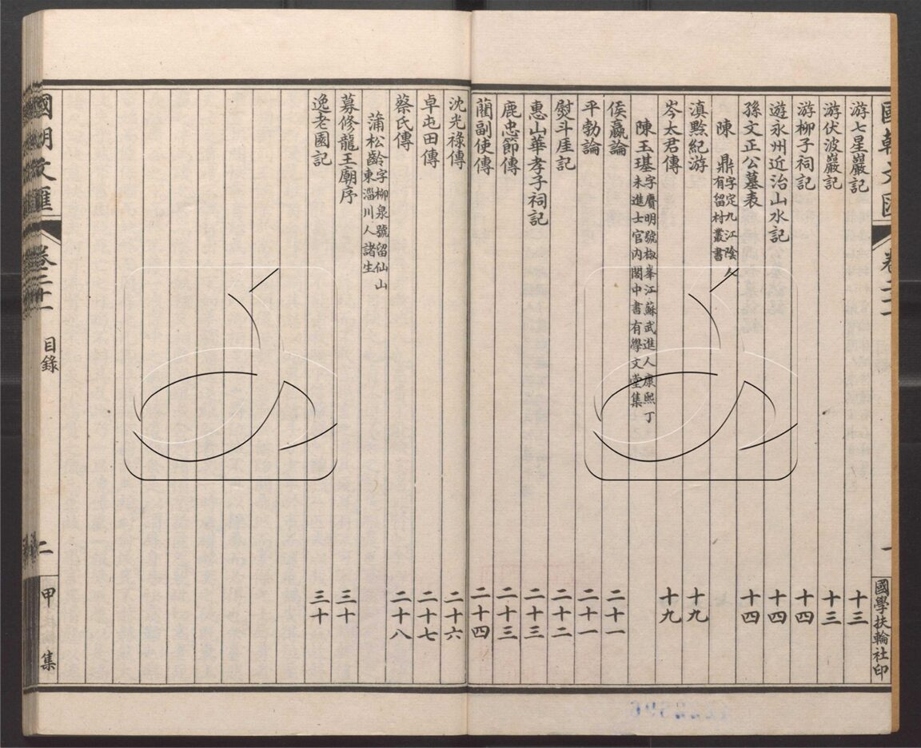 國學扶輪社印
游七星巖記 十三
游伏波巖記 十三
游柳子祠記 十四
遊永州近治山水記 十四
孫文正公墓表 十四
陳鼎 字定九江陰人有留村叢書
滇黔紀游 十九
岑太君傳 十九
陳玉璂 字賡明號椒峯江蘇武進人康熙丁未進士官內閣中書有學文堂集
侯嬴論 二十一
平勃論 二十一
熨斗厓記 二十二
惠山華孝子祠記 二十三
鹿忠節傳 二十三
藺副使傳 二十四
沈光祿傳 二十六
卓屯田傳 二十七
蔡氏傳 二十八
蒲松齡 字柳泉號留仙山東淄川人諸生
募修龍王廟序 三十
逸老園記 三十
國朝文匯 卷二十一 目錄 二 甲集